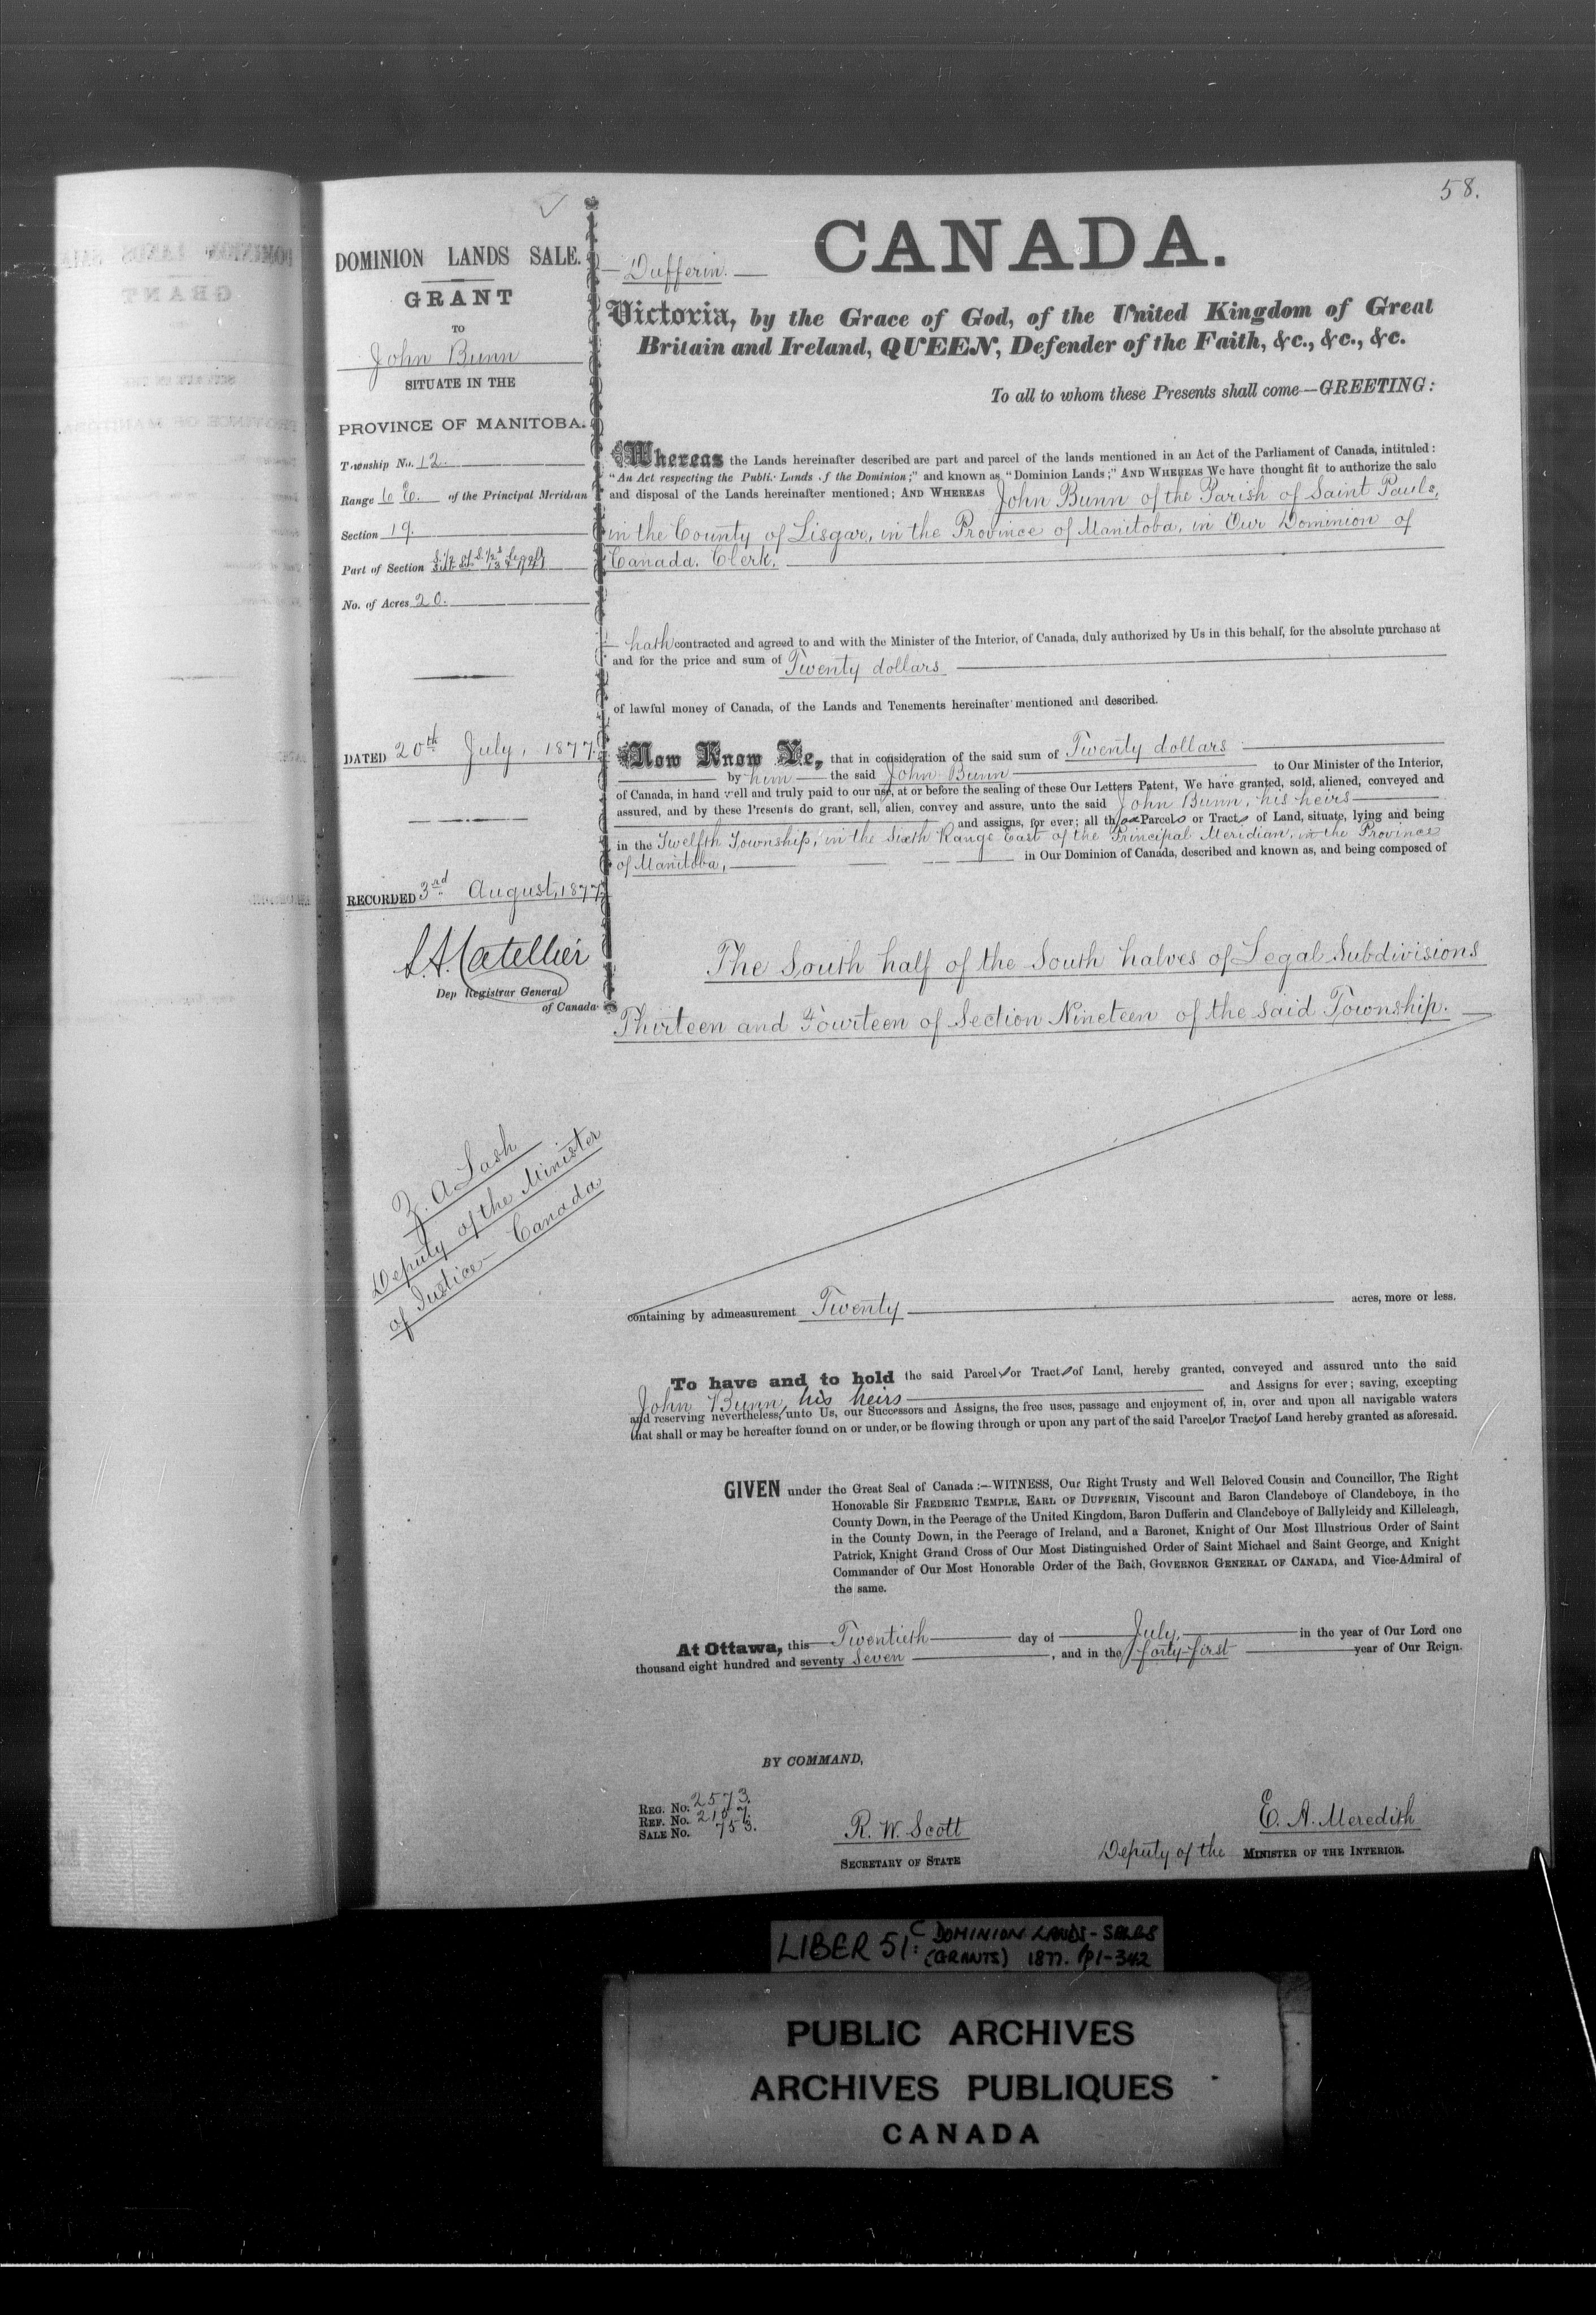 58.
DOMINION LANDS SALE.
GRANT
TO
John Bunn
SITUATE IN THE
PROVINCE OF MANITOBA.
Township No. 12.
Range 6 E. of the Principal Meridian
Section 19.
Part of Section S. 1/2 of S. 1/2s Legal
Sub. 13 & 14
No. of Acres 20.
DATED 20th July, 1877.
RECORDED 3rd August, 1877
Dep Registrar General
of Canada
Z. A Lash
Deputy of the Minister
of Justice - Canada
Dufferin.
CANADA.
Victoria, by the Grace of God, of the United Kingdom of Great
Britain and Ireland, QUEEN, Defender of the Faith, &c., &c., &c.
To all to whom these Presents shall come—GREETING:
Whereas the Lands hereinafter described are part and parcel of the lands mentioned in an Act of the Parliament of Canada, intituled:
"An Act respecting the Public Lands of the Dominion;" and known as "Dominion Lands;" AND WHEREAS We have thought fit to authorize the sale
and disposal of the Lands hereinafter mentioned; AND WHEREAS John Bunn of the Parish of Saint Pauls,
in the County of Lisgar, in the Province of Manitoba, in Our Dominion of
Canada. Clerk.
hath contracted and agreed to and with the Minister of the Interior, of Canada, duly authorized by Us in this behalf, for the absolute purchase at
and for the price and sum of Twenty dollars
of lawful money of Canada, of the Lands and Tenements hereinafter mentioned and described.
Now Know Ye, that in consideration of the said sum of Twenty dollars
by him the said John Bunn to Our Minister of the Interior,
of Canada, in hand well and truly paid to our use, at or before the sealing of these Our Letters Patent, We have granted, sold, aliened, conveyed and
assured, and by these Presents do grant, sell, alien, convey and assure, unto the said John Bunn, his heirs
and assigns, for ever; all those Parcels or Tracts of Land, situate, lying and being
in the Twelfth Township, in the Sixth Range East of the Principal Meridian, in the Province
of Manitoba, in Our Dominion of Canada, described and known as, and being composed of
The South half of the South halves of Legal Subdivisions
Thirteen and Fourteen of Section Nineteen of the said Township.
containing by admeasurement Twenty acres, more or less.
To have and to hold the said Parcel or Tract of Land, hereby granted, conveyed and assured unto the said
John Bunn, his heirs and Assigns for ever; saving, excepting
and reserving nevertheless, unto Us, our Successors and Assigns, the free uses, passage and enjoyment of, in, over and upon all navigable waters
that shall or may be hereafter found on or under, or be flowing through or upon any part of the said Parcel or Tract of Land hereby granted as aforesaid.
GIVEN under the Great Seal of Canada:—WITNESS, Our Right Trusty and Well Beloved Cousin and Councillor, The Right
Honorable Sir FREDERIC TEMPLE, EARL OF DUFFERIN, Viscount and Baron Clandeboye of Clandeboye, in the
County Down, in the Peerage of the United Kingdom, Baron Dufferin and Clandeboye of Ballyleidy and Killeleagh,
in the County Down, in the Peerage of Ireland, and a Baronet, Knight of Our Most Illustrious Order of Saint
Patrick, Knight Grand Cross of Our Most Distinguished Order of Saint Michael and Saint George, and Knight
Commander of Our Most Honorable Order of the Bath, GOVERNOR GENERAL OF CANADA, and Vice-Admiral of
the same.
At Ottawa, this Twentieth day of July, in the year of Our Lord one
thousand eight hundred and seventy Seven, and in the forty-first year of Our Reign.
BY COMMAND,
REG. No. 2573.
REF. No.
SALE No. 753.
R. W. Scott
SECRETARY OF STATE
E. A. Meredith
Deputy of the MINISTER OF THE INTERIOR.
LIBER 51: C DOMINION LANDS - SALES
(GRANTS) 1877. pp1-342
PUBLIC ARCHIVES
ARCHIVES PUBLIQUES
CANADA